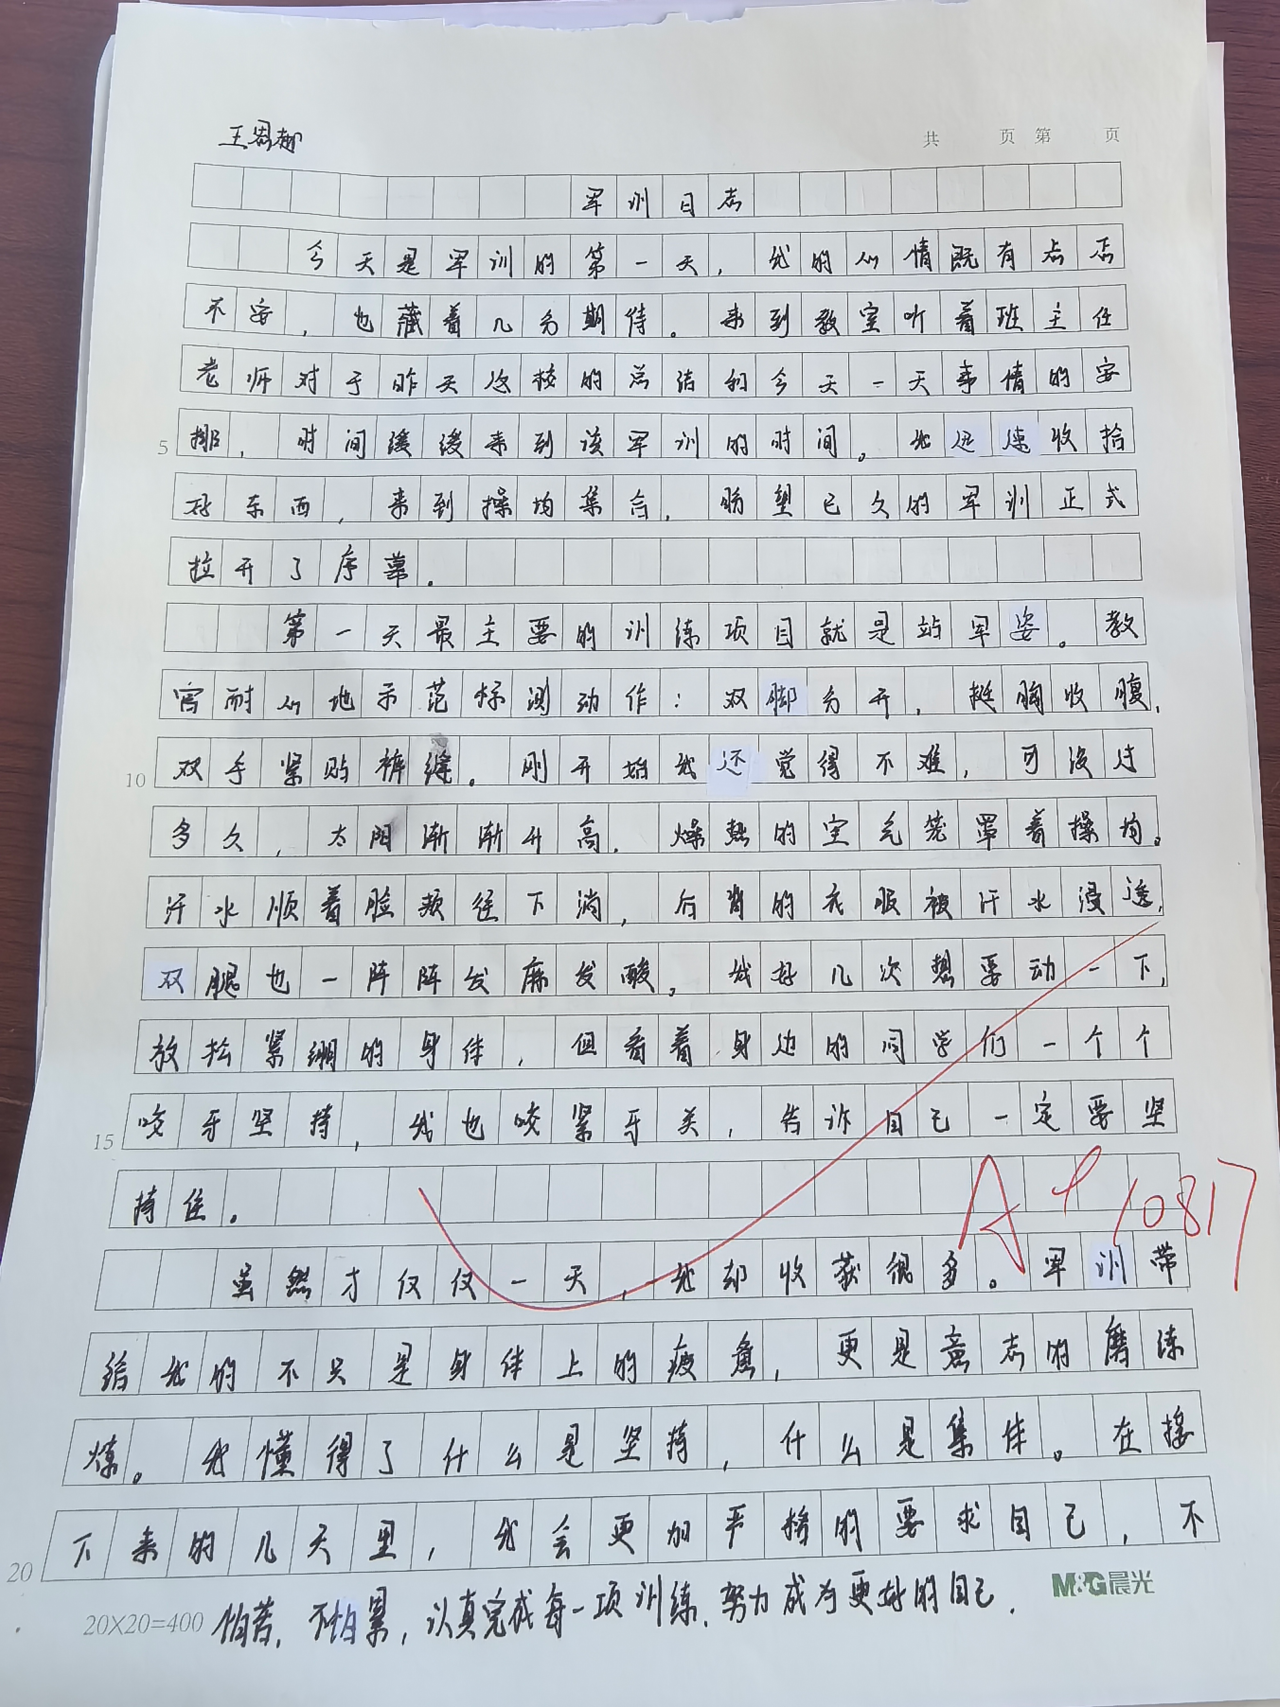 共 页 第 页
军训日志
今天是军训的第一天，我的心情既有点忐
不安，也藏着几分期待。来到教室听着班主任
老师对于昨天返校的总结和今天一天事情的安
5 排，时间缓缓来到该军训的时间。我迅速收拾
好东西，来到操场集合，盼望已久的军训正式
拉开了序幕。
第一天最主要的训练项目就是站军姿。教
官耐心地示范标测动作：双脚分开，挺胸收腹，
10 双手紧贴裤缝。刚开始我还觉得不难，可没过
多久，太阳渐渐升高，燥热的空气笼罩着操场。
汗水顺着脸颊往下淌，后背的衣服被汗水浸透，
双腿也一阵阵发麻发酸，我好几次想要动一下，
放松紧绷的身体，但看着身边的同学们一个个
15 咬牙坚持，我也咬紧牙关，告诉自己一定要坚
持住。
A+ 10817
虽然才仅仅一天，我却收获很多。军训带
给我的不只是身体上的疲惫，更是意志的磨练
炼。我懂得了什么是坚持，什么是集体。在接
20 下来的几天里，我会更加严格的要求自己，不
20X20=400 怕苦，不怕累，认真完成每一项训练，努力成为更好的自己．
M&G晨光